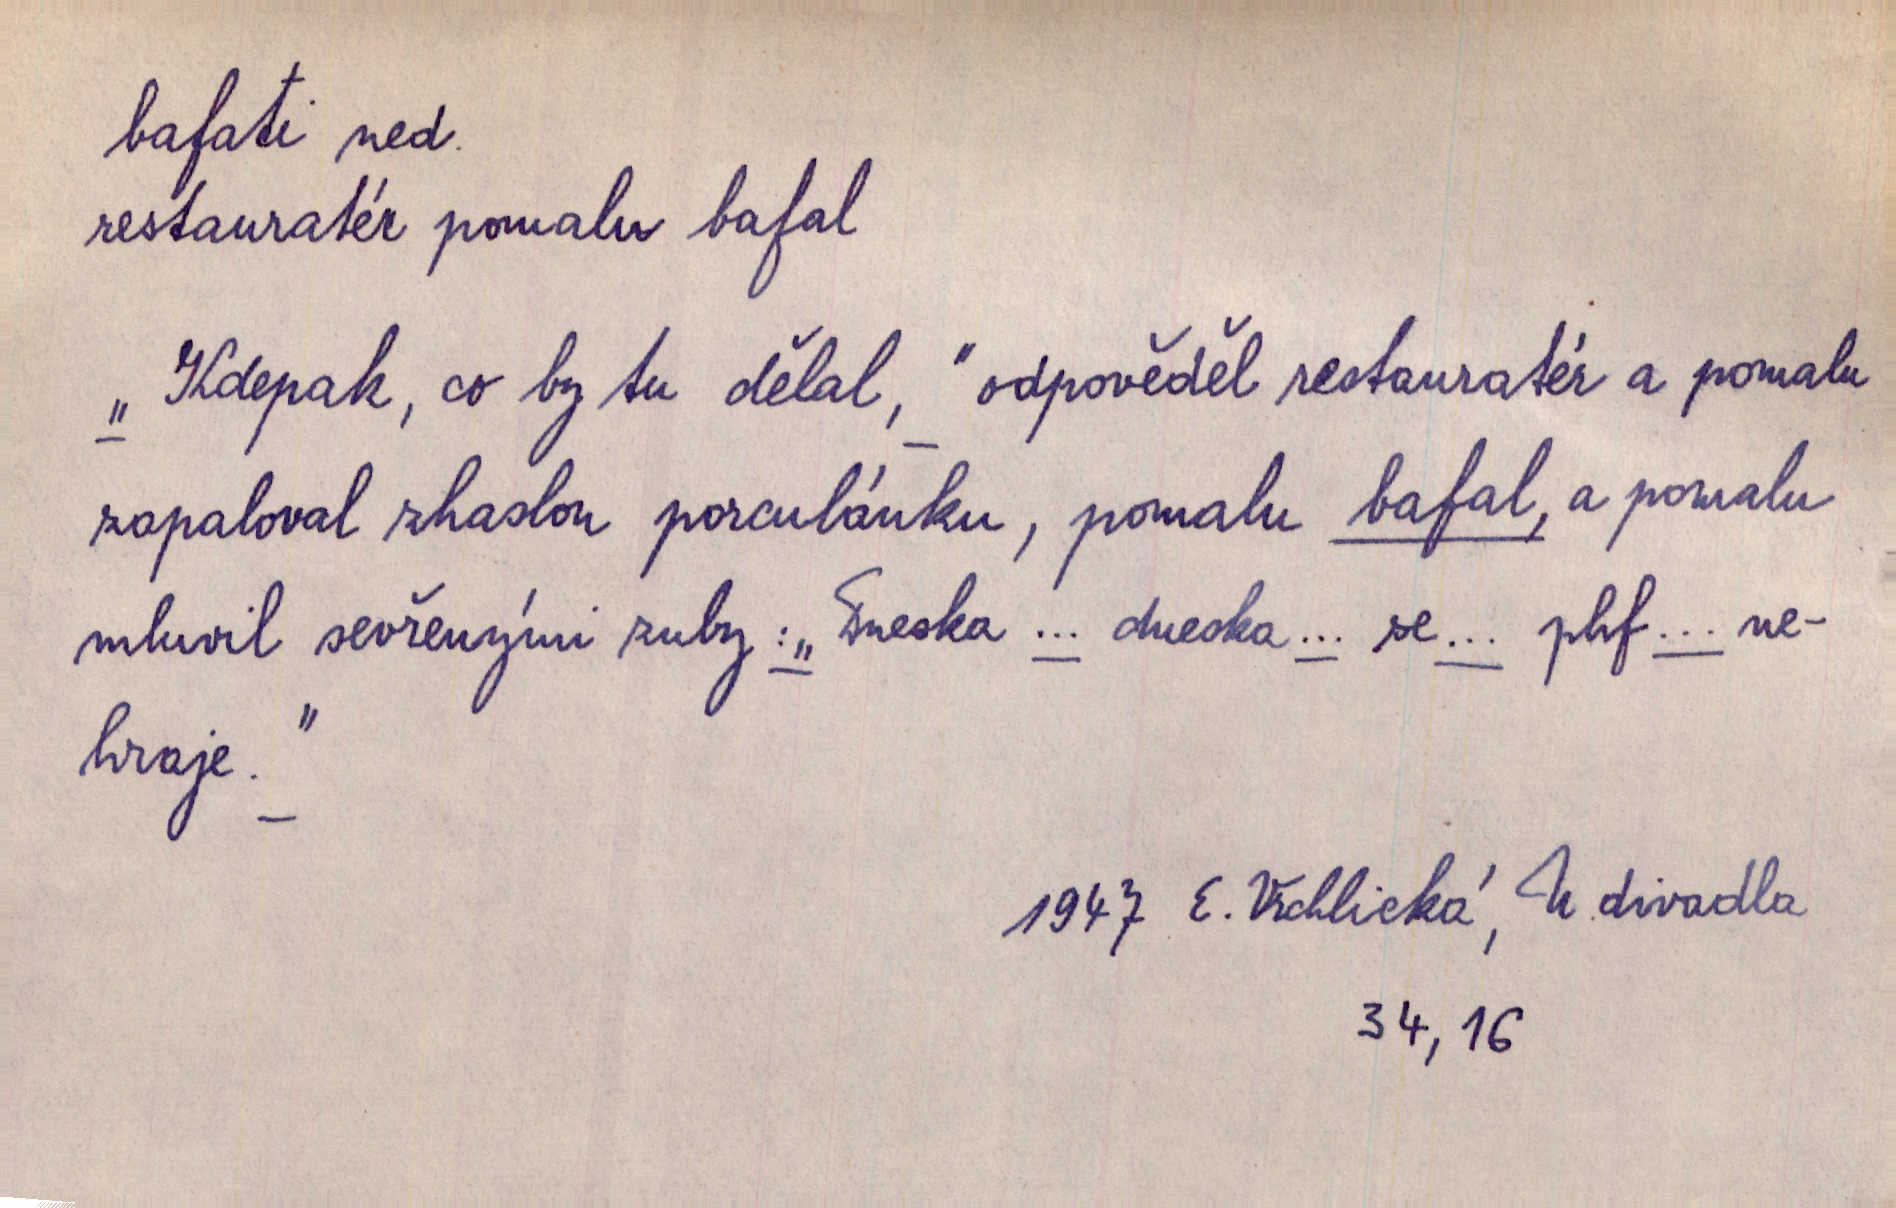 bafati ned.
restauratér pomalu bafal
„Kdepak, co by tu dělal,“ odpověděl restauratér a pomalu
zapaloval zhaslou porculánku, pomalu bafal, a pomalu
mluvil sevřenými zuby: „Dneska ... dneska ... se ... phf ... ne-
hraje.“
1947 E. Vrchlická, U divadla
34, 16